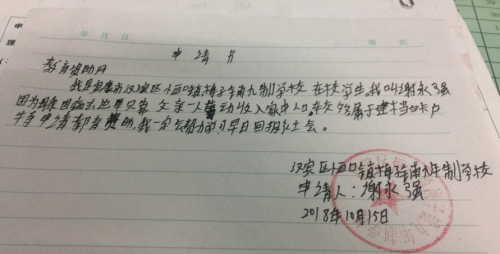 申请书
教育资助网
我是安康市汉滨区小河口镇梅子甫九制学校在校学生,我叫谢永强
因为母亲因病去世只靠父亲一人劳动收入家中人口较多属于建档立卡户
特申请教育资助,我一定会努力学习早日回报社会。
汉滨区 镇梅子甫九年制学校
申请人:谢永强
2018年10月15日